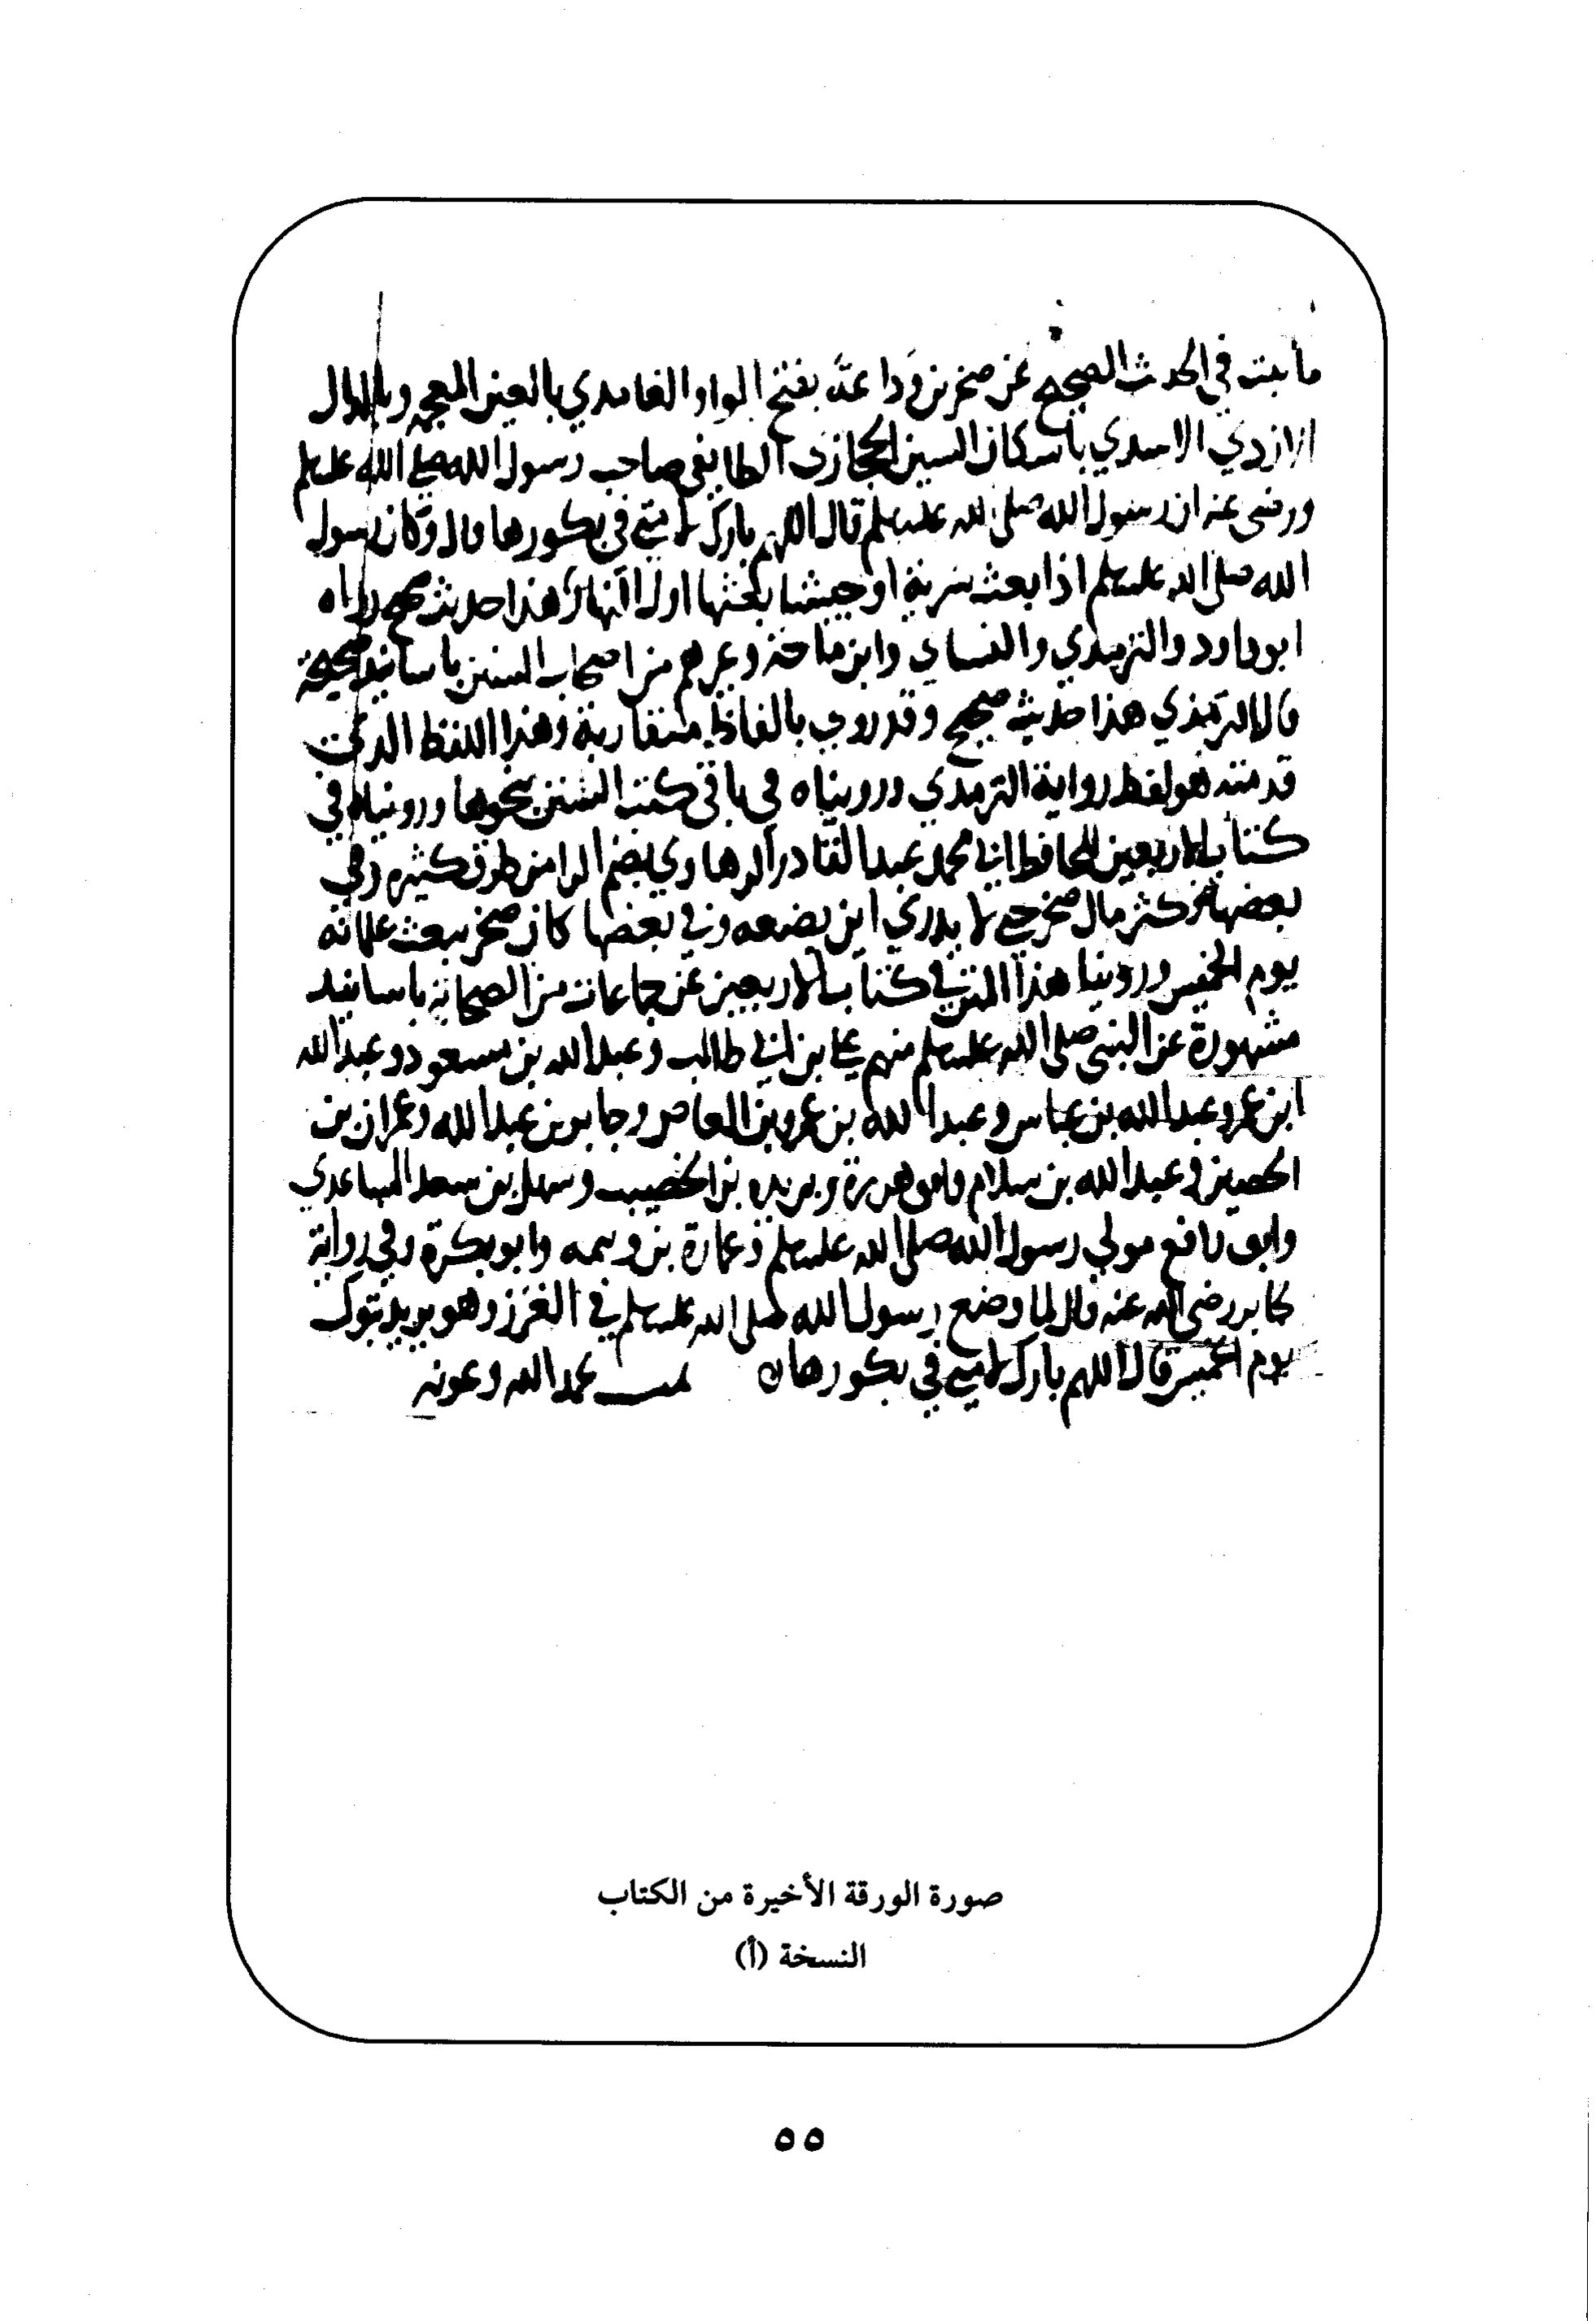 ما ثبت في الحديث الصحيح عن صخر بن وَداعَة بفتح الواو الغامدي بالغين المعجمه وبالدال
الازدي الاسدي باسكان السين الحجازي الطايفي صاحب رسول الله صلى الله عليه وسلم
ورضى عنه ان رسول الله صلى الله عليه وسلم قال اللهم بارك لامتي في بكورها قال وكان رسول
الله صلى الله عليه وسلم اذا بعث سرية او جيشا بعثها اول النهار هذا حديث صحيح رواه
ابو داود والترمذي والنساي وابن ماجة وغيرهم من اصحاب السنن باسانيد صحيحة
قال الترمذي هذا حديث صحيح وقد روي بالفاظ متقاربة وهذا اللفظ الذي
قدمته هو لفظ رواية الترمذي ورويناه في باقي كتب السنن بنحوها ورويناه في
كتاب الاربعين للحافظ ابي محمد عبد القادر الرهاوي بضم الرا من طرق كثيره وفي
بعضها فكثر مال صخر حتى لا يدري اين يضعه وفي بعضها كان صخر يبعث غلمانه
يوم الخميس وروينا هذا المتن في كتاب الاربعين عن جماعات من الصحابة باسانيد
مشهورة عن النبي صلى الله عليه وسلم منهم علي بن ابي طالب وعبد الله بن مسعود وعبد الله
ابن عمر وعبد الله بن عباس وعبد الله بن عمرو بن العاص وجابر بن عبد الله وعمران بن
الحصين وعبد الله بن سلام وابو هريرة وبريده بن الحصيب وسهل بن سعد الساعدي
وابو رافع مولى رسول الله صلى الله عليه وسلم وعمارة بن وسمه وابو بكرة وفي رواية
لجابر رضي الله عنه قال لما وضع رسول الله صلى الله عليه وسلم في الغرز وهو يريد تبوك
يوم الخميس قال اللهم بارك لامتي في بكورها تمت بحمد الله وعونه
صورة الورقة الأخيرة من الكتاب
النسخة (أ)
٥٥